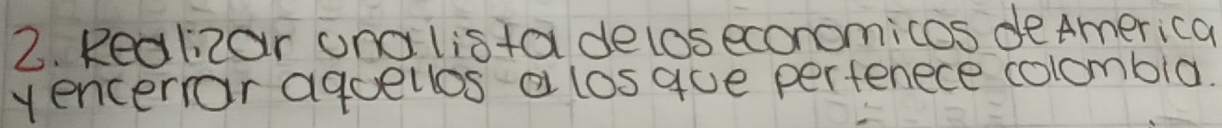 2. Realizar una lista de los economicos de America
y encerrar aquellos a los que pertenece colombia.